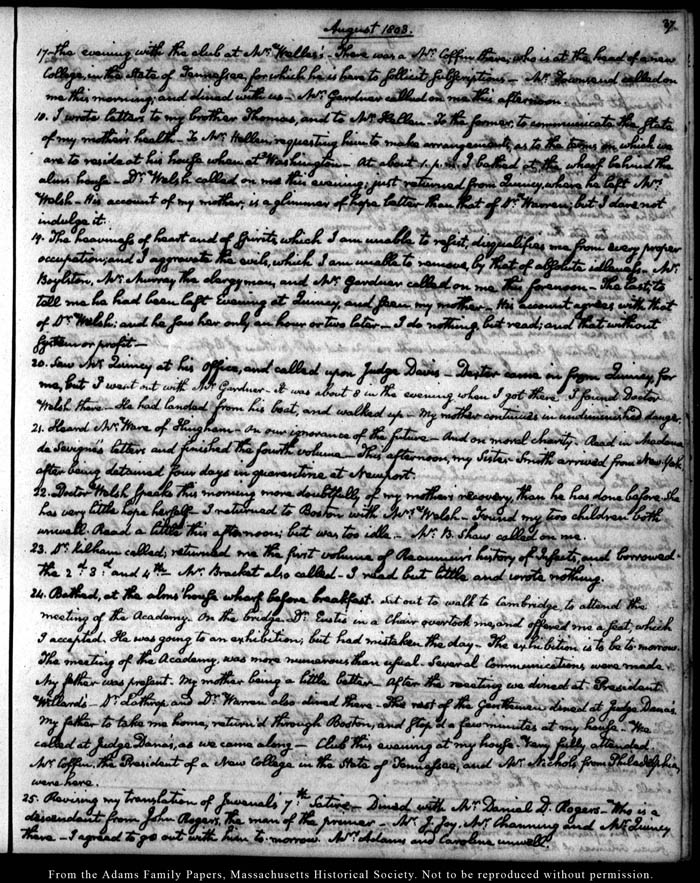 37.
August 1803.
17. the evening with the club at Mr. Walker's. There was a Mr. Coffin there, who is at the head of a new
College, in the State of Tennessee, for which he is here to sollicit subscriptions — Mr. Townsend called on
me this morning, and dined with us — Mr. Gardner called on me this afternoon.
18. I wrote letters to my brother Thomas, and to Mr. Hellen — To the former, to communicate the state
of my mother's health — To Mr. Hellen, requesting him to make arrangements, as to the terms on which we
are to reside at his house when at Washington — At about 1. p.m. I bathed at the wharf behind the
alms house — Dr. Welsh called on me this evening; just returned from Quincy, where he left Mrs.
Welsh — His account of my mother, is a glimmer of hope better than that of Dr. Warren; but I dare not
indulge it.
19. The heaviness of heart and of Spirits, which I am unable to resist, disqualifies me from every proper
occupation; and I aggravate the evils, which I am unable to remove, by that of absolute idleness — Mr.
Boylston, Mr. Murray the clergyman, and Mr. Gardner called on me this forenoon — The last, to
tell me he had been last Evening at Quincy, and seen my mother — His account agrees with that
of Dr. Welsh; and he saw her only an hour or two later — I do nothing but read; and that without
system or profit —
20. Saw Mr. Quincy at his office, and called upon Judge Davis — Dexter came in from Quincy, for
me, but I went out with Mr. Gardner — It was about 8 in the evening when I got there. I found Doctor
Welsh there — He had landed from his boat, and walked up — My mother continues in undiminished danger.
21. Heard Mr. Ware of Hingham — On our ignorance of the future — And on moral charity. Read in Madame
de Sevigné's letters and finished the fourth volume — This afternoon, my Sister Smith arrived from New York,
after being detained four days in quarantine at Newport.
22. Doctor Welsh speaks this morning more doubtfully of my mother's recovery, than he has done before. She
has very little hope herself — I returned to Boston with Mrs. Welsh — Found my two children both
unwell. Read a little this afternoon; but was too idle — Mr. B. Shaw called on me.
23. Dr. Kilham called; returned me the first volume of Reaumur's history of Insects, and borrowed
the 2d. 3d. and 4th — Mr. Bracket also called — I read but little and wrote nothing.
24. Bathed, at the alms house wharf before breakfast. Set out to walk to Cambridge, to attend the
meeting of the Academy. On the bridge Dr. Eustis in a Chair overtook me, and offered me a seat, which
I accepted. He was going to an exhibition; but had mistaken the day — The exhibition is to be to-morrow.
The meeting of the Academy, was more numerous than usual. Several Communications were made.
My father was present. My mother being a little better — After the meeting we dined at President
Willard's — Dr. Lathrop and Dr. Warren also dined there — The rest of the Gentlemen dined at Judge Dana's.
My father to take me home, return'd through Boston, and stop'd a few minutes at my house — We
called at Judge Dana's, as we came along — Club this evening at my house. Very fully attended.
Mr. Coffin, the President of a New College in the State of Tennessee, and Mr. Nichols from Philadelphia,
were here.
25. Revising my translation of Juvenal's 7th. Satire — Dined with Mr. Daniel D. Rogers — Who is a
descendant from John Rogers, the man of the primer — Mr. J. Joy, Mr. Channing and Mr. Quincy
there — I agreed to go out with him to-morrow. Mrs. Adams and Caroline unwell.
From the Adams Family Papers, Massachusetts Historical Society. Not to be reproduced without permission.